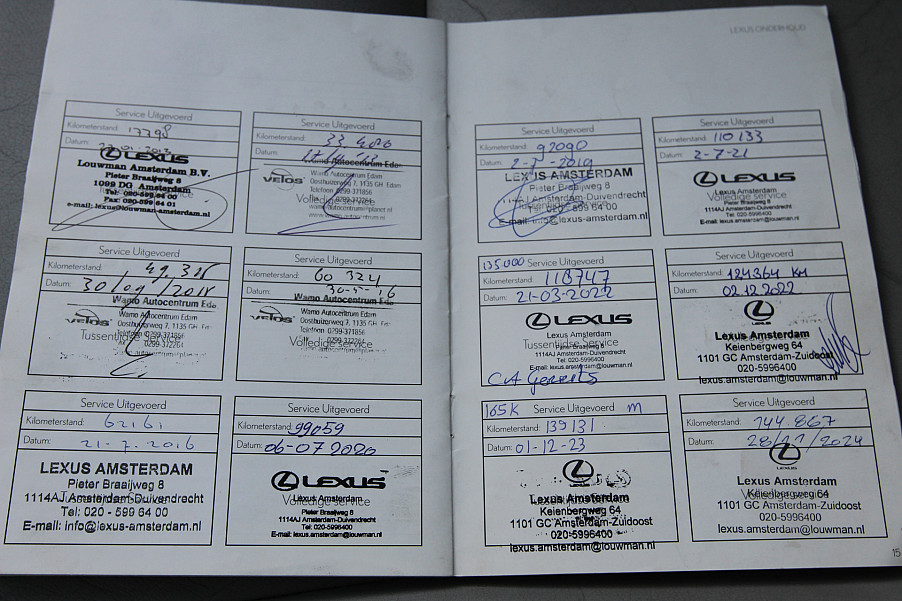 LEXUS ONDERHOUD
Service Uitgevoerd
Kilometerstand: 17798
Datum:
LEXUS
Louwman Amsterdam B.V.
Pieter Braaijweg 8
1099 DG Amsterdam
Tel: 020-599 64 00
Fax: 020-599 64 01
e-mail: lexus@louwman-amsterdam.nl
Service Uitgevoerd
Kilometerstand:
Datum:
Wamo Autocentrum Edam
VELOS
Wamo Autocentrum Edam
Oosthuizerweg 7, 1135 GH Edam
Telefoon 0299-371856
Volledige service
Kilometerstand:
Datum: 30/09/2014
Wamo Autocentrum Eda
VELOS
Wamo Autocentrum Edam
Oosthuizerweg 7, 1135 GH
Telefoon 0299-371856
Tussentijdse Service
Service Uitgevoerd
Kilometerstand: 60 324
Datum:
Wamo Autocentrum Eda
VELOS
Wamo Autocentrum Edam
Oosthuizerweg 7, 1135 GH
Telefoon 0299-371856
Volledige service
Service Uitgevoerd
Kilometerstand:
Datum: 21-7-2016
LEXUS AMSTERDAM
Pieter Braaijweg 8
1114AJ Amsterdam-Duivendrecht
Tel: 020 - 599 64 00
E-mail: info@lexus-amsterdam.nl
Service Uitgevoerd
Kilometerstand: 99059
Datum: 06-07 2020
LEXUS
Lexus Amsterdam
Volledige service
Pieter Braaijweg 8
1114AJ Amsterdam-Duivendrecht
Tel: 020-5996400
E-mail: lexus.amsterdam@louwman.nl
Service Uitgevoerd
Kilometerstand: 92090
Datum: 2-7-2019
LEXUS AMSTERDAM
Pieter Braaijweg 8
1114AJ Amsterdam-Duivendrecht
E-mail: info@lexus-amsterdam.nl
Service Uitgevoerd
Kilometerstand: 110133
Datum: 2-7-21
LEXUS
Lexus Amsterdam
Volledige service
Pieter Braaijweg 8
1114AJ Amsterdam-Duivendrecht
Tel: 020-5996400
E-mail: lexus.amsterdam@louwman.nl
135.000 Service Uitgevoerd
Kilometerstand: 118747
Datum: 21-03-2022
LEXUS
Lexus Amsterdam
Tussentijdse Service
Pieter Braaijweg 8
1114AJ Amsterdam-Duivendrecht
Tel: 020-5996400
E-mail: lexus.amsterdam@louwman.nl
Service Uitgevoerd
Kilometerstand: 124364 KM
Datum: 02.12.2022
Lexus Amsterdam
Keienbergweg 64
1101 GC Amsterdam-Zuidoost
020-5996400
lexus.amsterdam@louwman.nl
165K Service Uitgevoerd m
Kilometerstand: 139131
Datum: 01-12-23
Lexus Amsterdam
Keienbergweg 64
1101 GC Amsterdam-Zuidoost
020-5996400
lexus.amsterdam@louwman.nl
Service Uitgevoerd
Kilometerstand: 144.867
Datum: 28/11/2024
LEXUS
Lexus Amsterdam
Volledige service
Keienbergweg 64
1101 GC Amsterdam-Zuidoost
020-5996400
lexus.amsterdam@louwman.nl
15